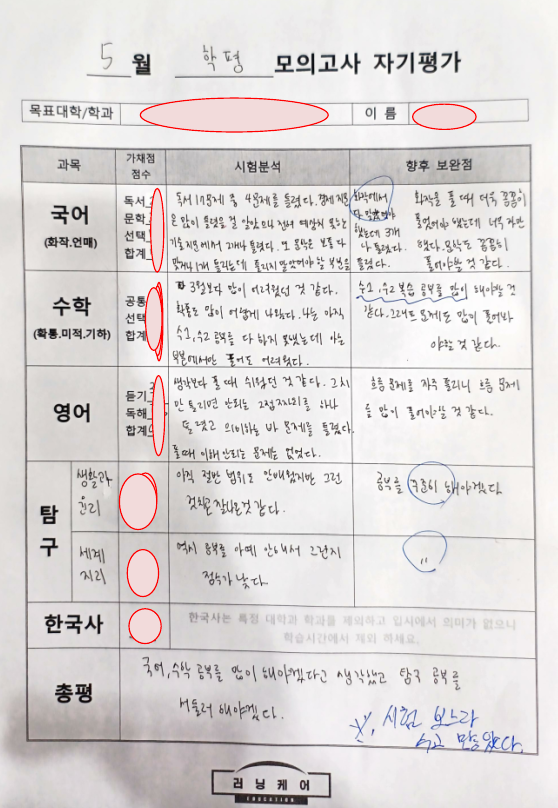 5월 학평 모의고사 자기평가
목표대학/학과 이 름
과목 가채점 점수 시험분석 향후 보완점
국어
(화작.언매)
독서
문학
선택
합계
독서 17문제 중 4문제를 틀렸다. 경제 지문
은 많이 틀렸을 걸 알았으나 전혀 예상치 못했는
기술지문에서 2개나 틀렸다. 또 문학은 보통 다
맞거나 1개 틀리는데 틀리지 말았어야 할 부분을
틀렸다.
화작에서
다 맞았어야
했는데 3개
나 틀렸다.
화작을 풀 때 더욱 꼼꼼히
풀었어야 했는데 너무 자만
했다. 문학도 꼼꼼히
풀어야할 것 같다.
수학
(확통.미적.기하)
공통
선택
합계
3월보다 많이 어려웠던 것 같다.
확통도 많이 어렵게 나왔다. 나는 아직
수1, 수2 공부를 다 하지 못했는데 아는
부분에서만 풀어도 어려웠다.
수1, 수2 복습 공부를 많이 해야할 것
같다. 그래도 문제도 많이 풀어봐
야할 것 같다.
영어
듣기
독해
합계
생각보다 풀 때 쉬웠던 것 같다. 그치
만 틀리면 안되는 2점짜리를 하나
또 틀렸고 의미하는 바 문제를 틀렸다.
풀 때 이해 안되는 문제는 없었다.
흐름 문제를 자주 틀리니 흐름 문제
를 많이 풀어야할 것 같다.
탐구
생활과
윤리
아직 절반 범위도 안배웠지만 그런
것치곤 잘나온것 같다.
공부를 꾸준히 해야겠다.
세계
지리
역시 공부를 아예 안해서 그런지
점수가 낮다.
"
한국사
한국사는 특정 대학과 학과를 제외하고 입시에서 의미가 없으니
학습시간에서 제외 하세요.
총평
국어, 수학 공부를 많이 해야겠다고 생각했고 탐구 공부를
서둘러 해야겠다.
시험 보느라
수고 많았다.
러닝케어
EDUCATION